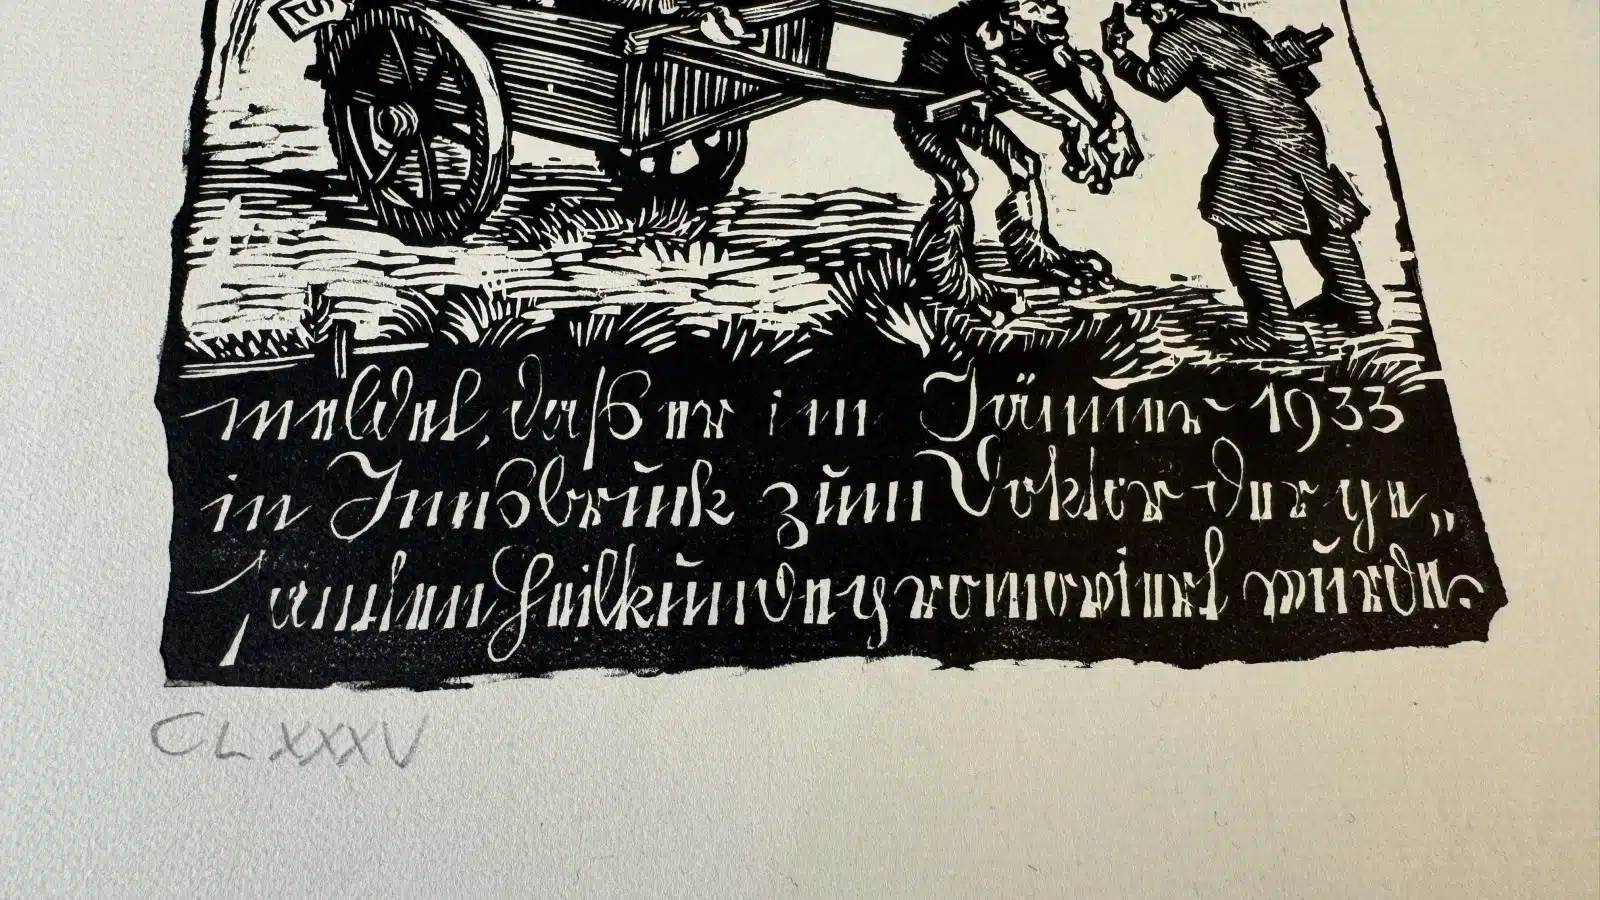 meldet, daß er im Jänner 1933
in Innsbruck zum Doktor der ge„
samten Heilkunde promoviert wurde.
CLXXXV